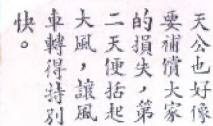 天公也好像
要補償大家
的損失，第
二天便括起
大風，讓風
車轉得特別
快。